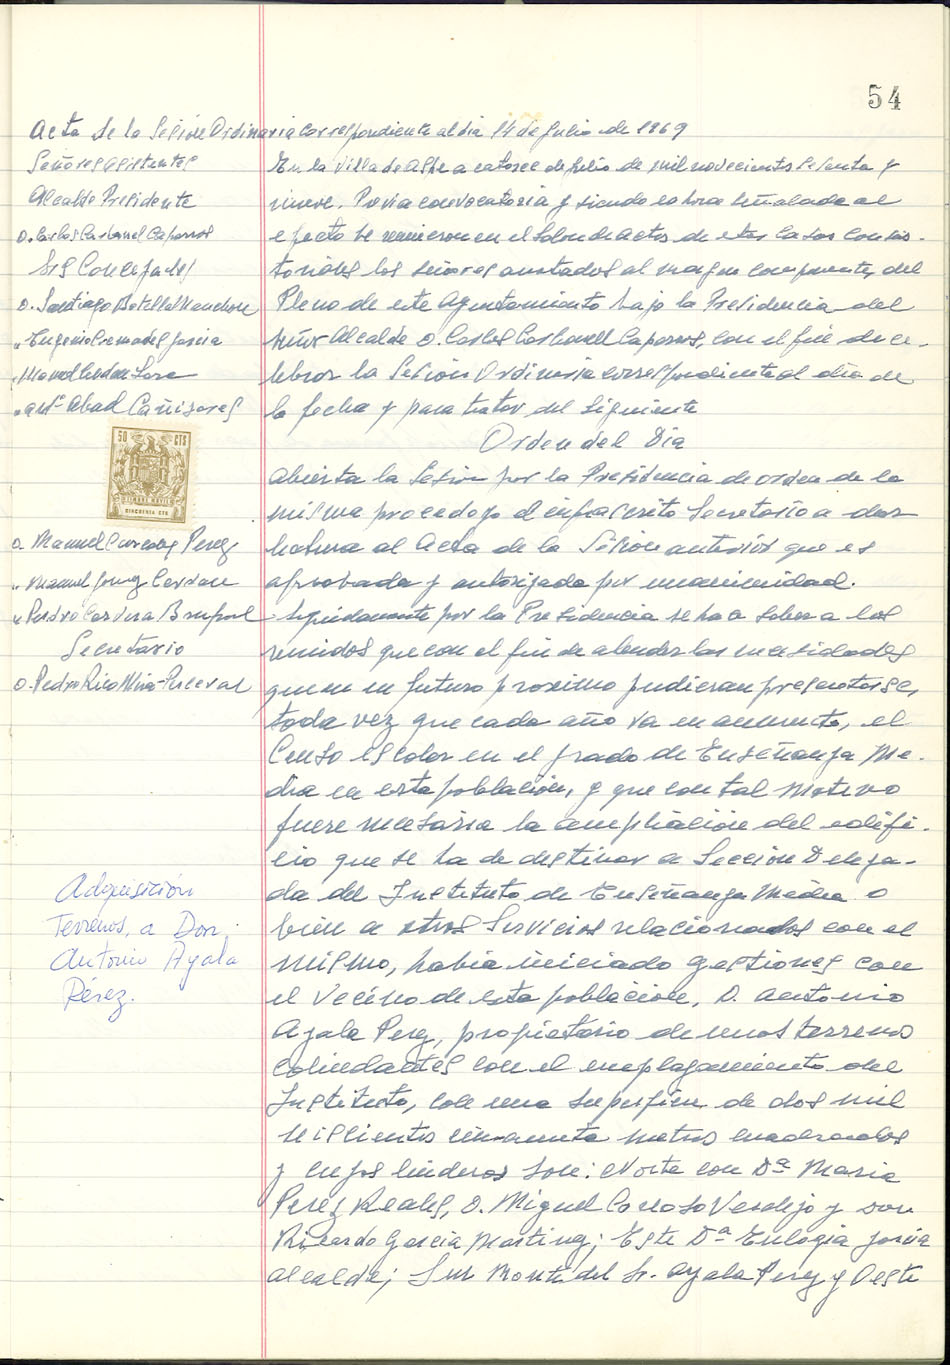 54
Acta de la Sesión Ordinaria correspondiente al dia 14 de Julio de 1969
Señores asistentes
Alcalde Presidente
D. Carlos Carbonel Caparros
Srs Concejales
D. Santiago Botella Manchon
" Eugenio Cremades Garcia
" Manuel Cerdan
" Antº Abad Cañizares
50 CTS
CINCUENTA CTS
D. Manuel Perez
" Manuel Gomez Cerdan
" Pedro Cervera
Secretario
D. Pedro Rico Mira-Perceval
Adquisición
Terrenos, a Don
Antonio Ayala
Pérez.
En la Villa de Aspe a catorce de julio de mil novecientos sesenta y
nueve. Previa convocatoria y siendo la hora señalada al
efecto se reunieron en el Salon de actos de estas Casas Consis-
toriales los señores anotados al margen componentes del
Pleno de este Ayuntamiento bajo la Presidencia del
señor Alcalde D. Carlos Carbonell Caparros, con el fin de ce-
lebrar la Sesión Ordinaria correspondiente al dia de
la fecha y para tratar del siguiente
Orden del Dia
Abierta la Sesion por la Presidencia de orden de la
misma procedo yo el infrascrito Secretario a dar
lectura al Acta de la Sesion anterior que es
aprobada y autorizada por unanimidad.
Seguidamente por la Presidencia se hace saber a los
reunidos que con el fin de atender las necesidades
que en un futuro proximo pudieran presentarse,
toda vez que cada año va en aumento, el
Censo escolar en el grado de Enseñanza Me-
dia en esta población, y que con tal motivo
fuere necesaria la ampliación del edifi-
cio que se ha de destinar a Sección Delega-
da del Instituto de Enseñanza Media o
bien a otros Servicios relacionados con el
mismo, habia iniciado gestiones con
el vecino de esta población, D. Antonio
Ayala Perez, propietario de unos terrenos
colindantes con el emplazamiento del
Instituto, con una superficie de dos mil
seiscientos cincuenta metros cuadrados
y cuyos linderos son: Norte con Dª Maria
Perez Reales, D. Miguel Verdejo y don
Ricardo Garcia Martinez; Este Dª Eulogia Garcia
Alcalde; Sur Monte del Sr. Ayala Perez y Oeste